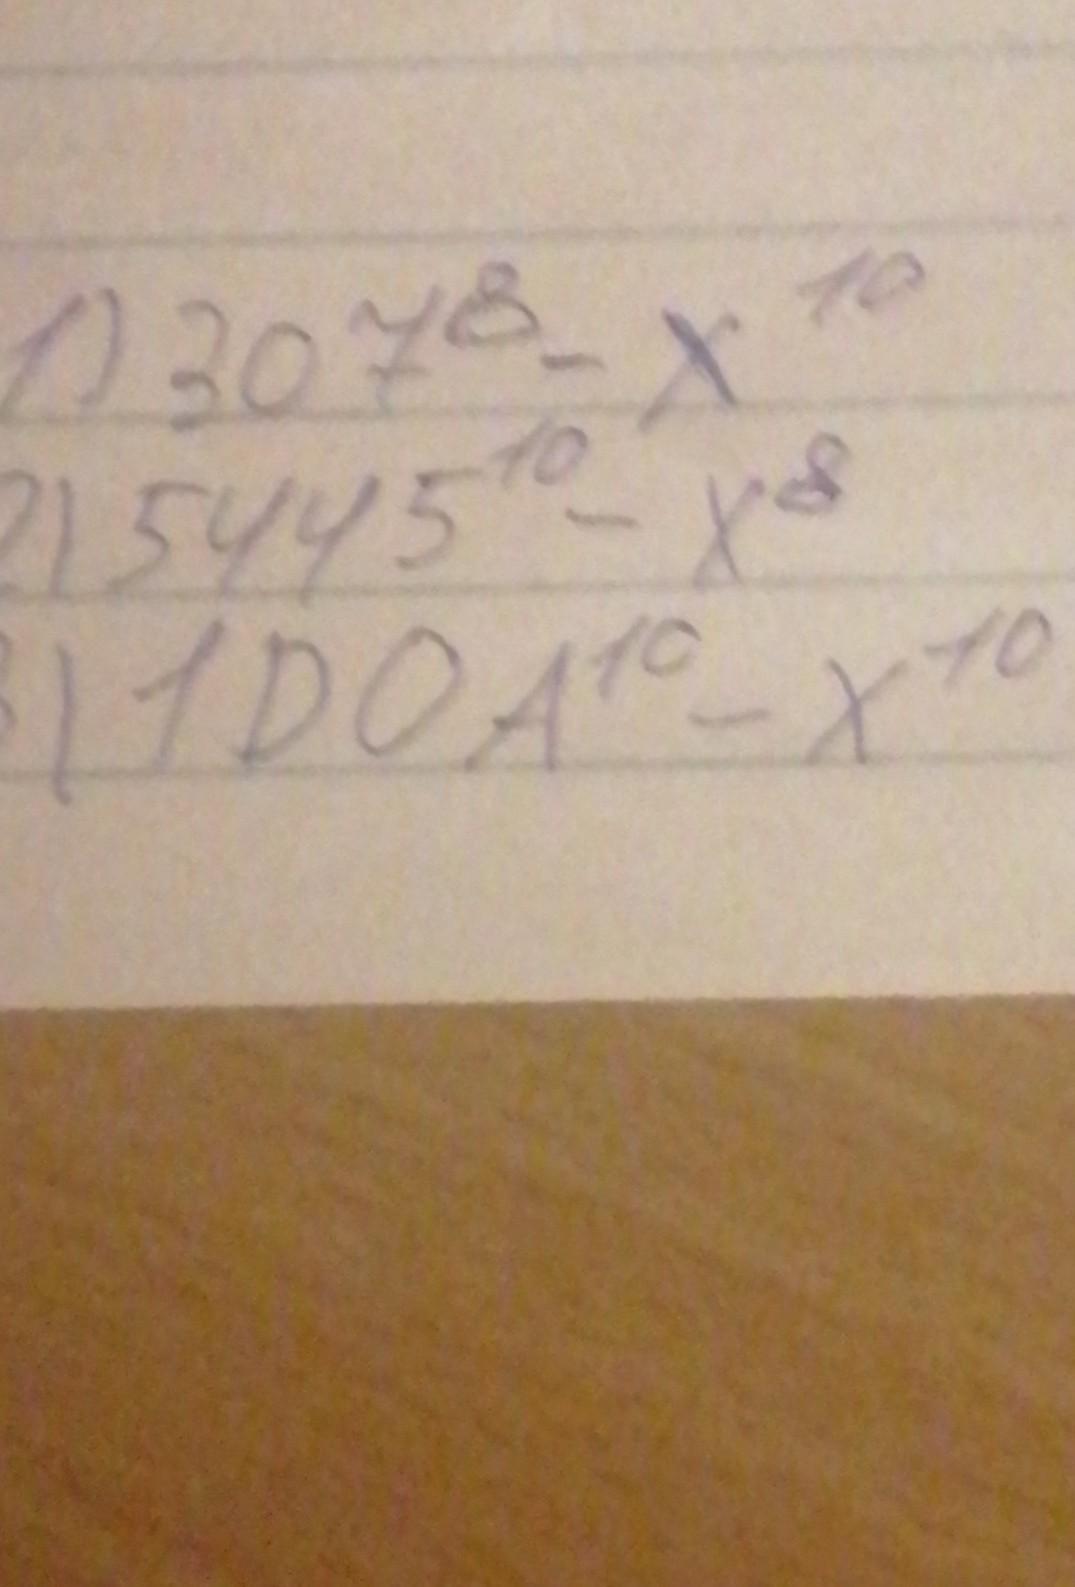 1) 307⁸ - x¹⁰
2) 5445¹⁰ - x⁸
3) 1D0A¹⁰ - x¹⁰